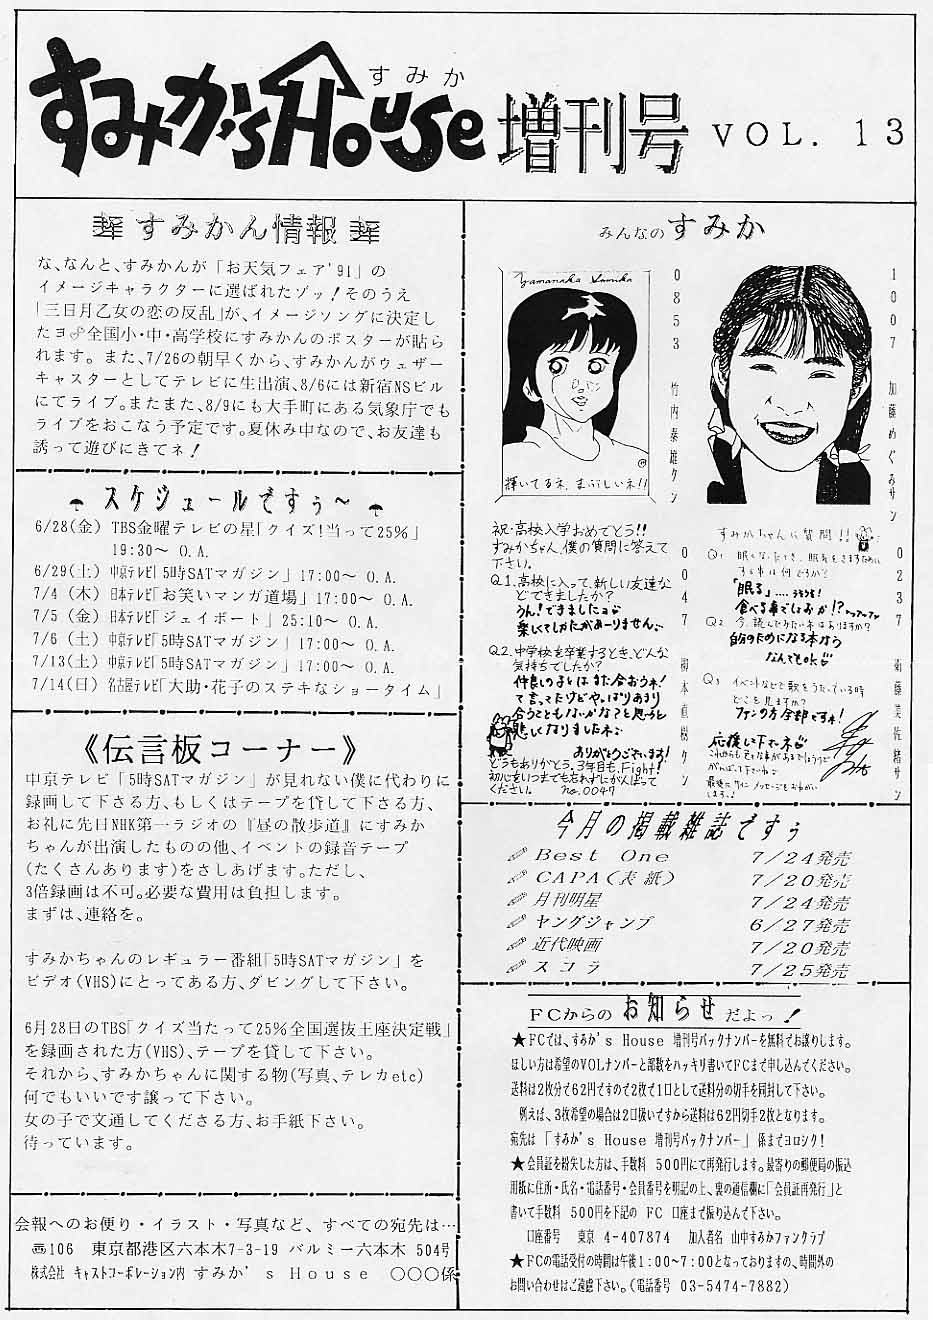 すみか
すみか's House 増刊号 VOL. 13
すみかん情報
な、なんと、すみかんが「お天気フェア'91」の
イメージキャラクターに選ばれたゾッ!そのうえ
「三日月乙女の恋の反乱」が、イメージソングに決定し
たヨ 全国小・中・高学校にすみかんのポスターが貼ら
れます。また、7/26の朝早くから、すみかんがウェザー
キャスターとしてテレビに生出演、8/6には新宿NSビル
にてライブ。またまた、8/9にも大手町にある気象庁でも
ライブをおこなう予定です。夏休み中なので、お友達も
誘って遊びにきてネ!
スケジュールですぅ〜
6/28(金) TBS金曜テレビの星「クイズ!当って25%」
19:30〜 O.A.
6/29(土) 中京テレビ「5時SATマガジン」17:00〜 O.A.
7/4 (木) 日本テレビ「お笑いマンガ道場」17:00〜 O.A.
7/5 (金) 日本テレビ「ジェイボート」25:10〜 O.A.
7/6 (土) 中京テレビ「5時SATマガジン」17:00〜 O.A.
7/13(土) 中京テレビ「5時SATマガジン」17:00〜 O.A.
7/14(日) 名古屋テレビ「大助・花子のステキなショータイム」
《伝言板コーナー》
中京テレビ「5時SATマガジン」が見れない僕に代わりに
録画して下さる方、もしくはテープを貸して下さる方、
お礼に先日NHK第一ラジオの『昼の散歩道』にすみか
ちゃんが出演したものの他、イベントの録音テープ
(たくさんあります)をさしあげます。ただし、
3倍録画は不可。必要な費用は負担します。
まずは、連絡を。
すみかちゃんのレギュラー番組「5時SATマガジン」を
ビデオ(VHS)にとってある方、ダビングして下さい。
6月28日のTBS「クイズ当たって25%全国選抜王座決定戦」
を録画された方(VHS)、テープを貸して下さい。
それから、すみかちゃんに関する物(写真、テレカetc)
何でもいいです譲って下さい。
女の子で文通してくださる方、お手紙下さい。
待っています。
会報へのお便り・イラスト・写真など、すべての宛先は…
〒106 東京都港区六本木7-3-19 バルミー六本木 504号
株式会社 キャストコーポレーション内 すみか's House ○○○係
みんなの すみか
Yamanaka Sumika
輝いてるネ、まぶしいネ!!
0853 竹内泰雄クン
1007 加藤めぐみサン
祝・高校入学おめでとう!!
すみかちゃん、僕の質問に答えて
下さい。
Q.1.高校に入って、新しい友達な
どできましたか?
うん!できましたョ
楽しくてしかたがありません。
Q.2.中学校を卒業するとき、どんな
気持ちでしたか?
仲良しのコとは また会おうネ!
て言ってたけど やっぱりあまり
会うこともないかな?と思うと
悲しくなりましたネ。
ありがとうございます!
どうもありがとう。3年目も、Fight!
初心をいつまでも忘れずにがんばって
ください。 no.0047
0047 本直樹クン
すみかちゃんに質問!!
Q1 眠くなったとき、眠気をさますために
する事は何ですか?
「眠る」…うそうそ!
食べる事でしょおか!?
Q2 今、読んだりたい本はありますか?
自分のためになる本なら
なんでもOK
Q3 イベントなどで歌をうたっている時
どこを見ますか?
ファンの方全部ですネ!
応援して下さいネ
これからも色々な事があるでしょうけど
がんばって下さいね
0237 衛藤美佐緒サン
今月の掲載雑誌ですぅ
Best One 7/24発売
CAPA(表紙) 7/20発売
月刊明星 7/24発売
ヤングジャンプ 6/27発売
近代映画 7/20発売
スコラ 7/25発売
FCからの お知らせ だよっ!
★FCでは、すみか's House 増刊号バックナンバーを無料でお譲りします。
ほしい方は希望のVOLナンバーと部数をハッキリ書いてFCまで申し込んでください。
送料は2枚分で62円ですので2枚で1口として送料分の切手を同封して下さい。
例えば、3枚希望の場合は2口扱いですから送料は62円切手2枚となります。
宛先は「すみか's House 増刊号バックナンバー」係までヨロシク!
★会員証を紛失した方は、手数料 500円にて再発行します。最寄りの郵便局の振込
用紙に住所・氏名・電話番号・会員番号を明記の上、裏の通信欄に「会員証再発行」と
書いて手数料 500円を下記の FC 口座まで振り込んで下さい。
口座番号 東京 4-407874 加入者名 山中すみかファンクラブ
★FCの電話受付の時間は午後1:00〜7:00となっておりますの、時間外の
お問い合わせはご遠慮下さい。(電話番号 03-5474-7882)